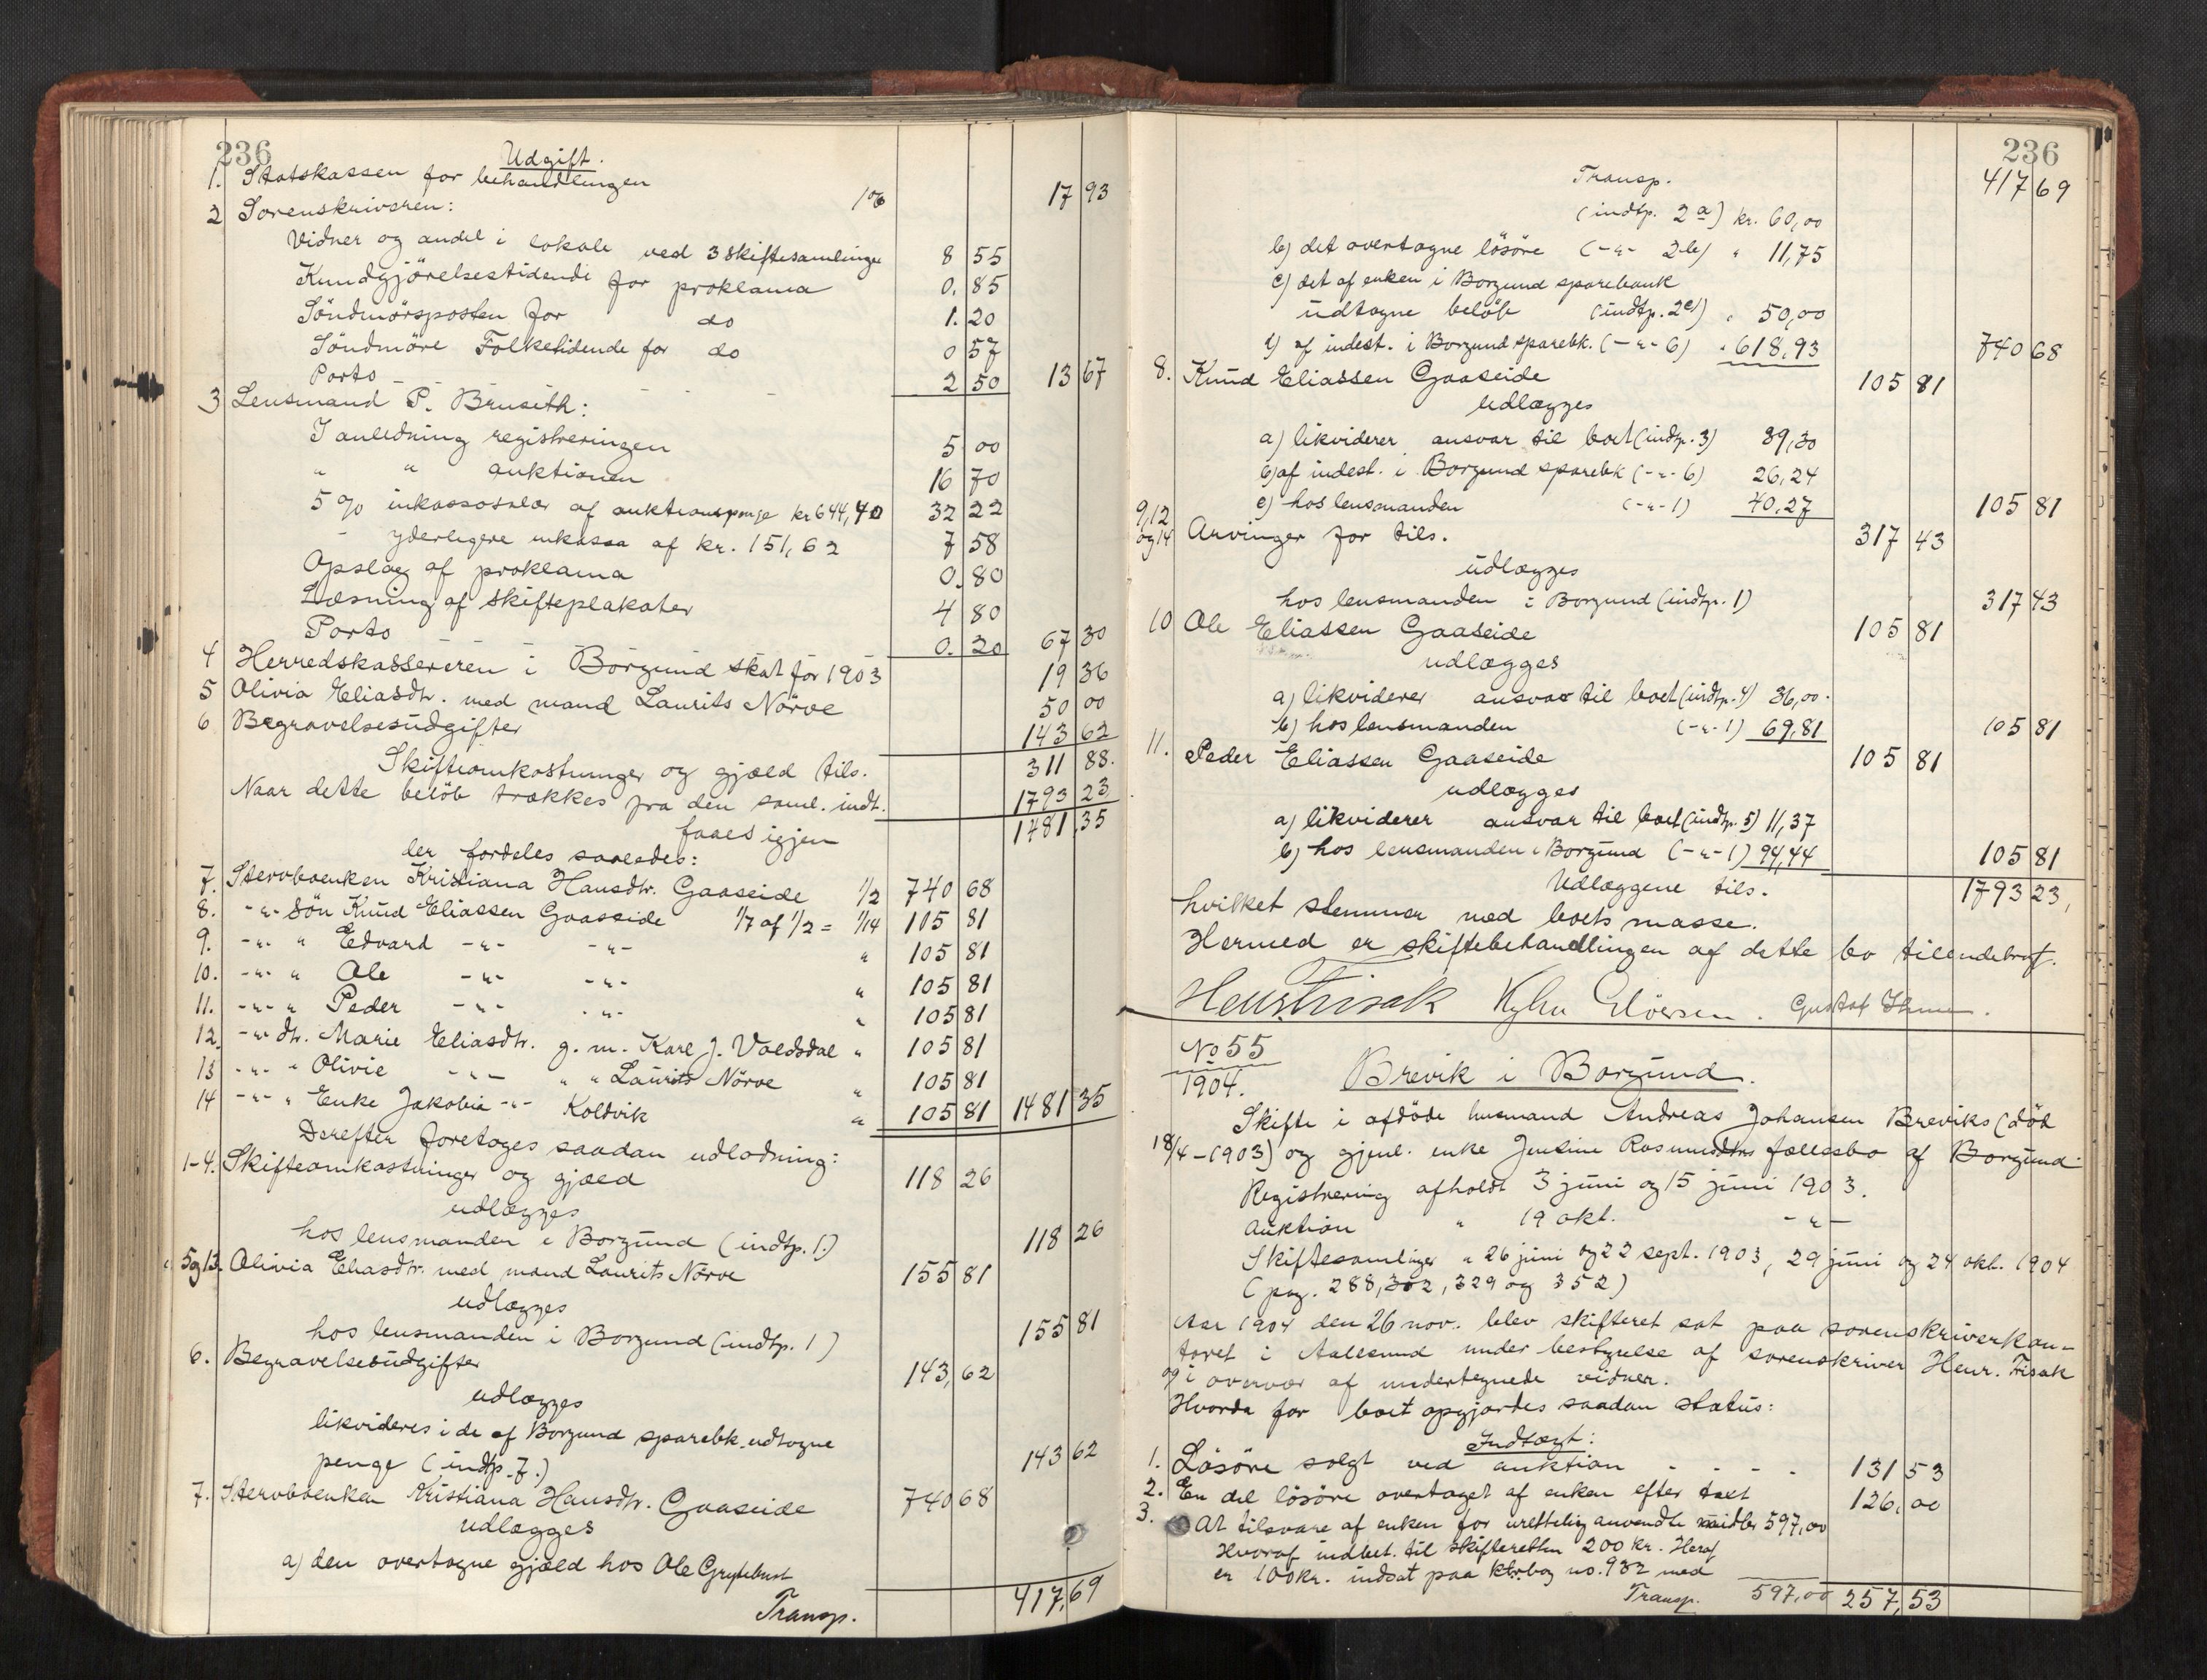 236
Udgift.
1. Statskassen for behandlingen 1% 17 93
2 Sorenskriveren:
Vidner og andel i lokale ved 3 skiftesamlinger 8 55
Kundgjörelsestidende for proklama 0. 85
Söndmörsposten for do 1. 20
Söndmöre Folketidende for do 0 57
Porto 2 50 13 67
3 Lensmand P. Bruseth:
I anledning registreringen 5 00
" " auktionen 16 70
5 % inkassosalær af auktionspenge kr 644,40 32 22
- yderligere inkassa af kr. 151,62 7 58
Opslag af proklama 0. 80
Læsning af skifteplakater 4 80
Porto 0. 20 67 30
4 Herredskassereren i Borgund skat for 1903 19 36
5 Olivia Eliasdtr. med mand Laurits Nörve 50 00
6 Begravelsesudgifter 143 62
Skifteomkostninger og gjæld tils. 311 88.
Naar dette belöb trækkes fra den saml. indt. 1793 23
faaes igjen 1481,35
der fordeles saaledes:
7. Stervboenken Kristiana Hansdtr. Gaaseide 1/2 740 68
8. -"- Sön Knud Eliassen Gaaseide 1/7 af 1/2 = 1/14 105 81
9. -"- " Edvard -"- -"- " 105 81
10. -"- " Ole -"- -"- " 105 81
11. -"- " Peder -"- -"- " 105 81
12. -"- dtr. Marie Eliasdtr. g. m. Karl J. Valdsdal " 105 81
13 -"- " Olivie -"- " " Laurits Nörve " 105 81
14 -"- " Enke Jakobia -"- Koldvik " 105 81 1481 35
Derefter foretages saadan udlodning:
1-4. Skifteomkostninger og gjæld 118 26
udlægges
hos lensmanden i Borgund (indtp. 1.) 118 26
5 og 13. Olivia Eliasdtr. med mand Laurits Nörve 155 81
udlægges
hos lensmanden i Borgund (indtp. 1) 155 81
6. Begravelsesudgifter 143,62
udlægges
likvideres i de af Borgund sparebk. udtagne
penge (indtp. 7.) 143 62
7. Stervboenken Kristiana Hansdtr. Gaaseide 740 68
udlægges
a) den overtagne gjæld hos Ole Grytebust
Transp. 417,69
236
Transp. 417 69
(indtp. 2 a) kr. 60,00
b) det overtagne lösöre (-"- 2 b) " 11,75
c) det af enken i Borgund sparebank
udtagne belöb (indtp. 2c) " 50,00
d) af indest. i Borgund sparebk. (-"- 6) " 618,93 740 68
8. Knud Eliassen Gaaseide 105 81
udlægges
a) likviderer ansvar til boet (indtp. 3) 39,30
b) af indest. i Borgund sparebk (-"- 6) 26,24
c) hos lensmanden (-"- 1) 40,27 105 81
9, 12 og 14 Arvinger for tils. 317 43
udlægges
hos lensmanden i Borgund (indtp. 1) 317 43
10 Ole Eliassen Gaaseide 105 81
udlægges
a) likviderer ansvar til boet (indtp. 4) 36,00.
b) hos lensmanden (-"- 1) 69,81 105 81
11. Peder Eliassen Gaaseide 105 81
udlægges
a) likviderer ansvar til boet (indtp. 5) 11,37
b) hos lensmanden i Borgund (-"- 1) 94,44 105 81
Udlæggene tils. 1793 23,
hvilket stemmer med boets masse.
Hermed er skiftebehandlingen af dette bo tilendebragt.
Henr. Finsak
No 55
1904.
Brevik i Borgund.
Skifte i afdöde husmand Andreas Johansen Breviks (död
18/4-1903) og gjenl. enke Jensine Rasmusdtrs fællesbo af Borgund
Registrering afholdt 3 juni og 15 juni 1903.
Auktion " 19 okt. -"-
Skiftesamlinger " 26 juni og 22 sept. 1903, 29 juni og 24 okt. 1904
(pag. 288, 302, 329 og 352)
Aar 1904 den 26 nov. blev skifteret sat paa sorenskriverkon-
toret i Aalesund under bestyrelse af sorenskriver Henr. Finsak
og i overvær af undertegnede vidner.
Hvorda for boet opgjordes saadan status:
Indtægt:
1. Lösöre solgt ved auktion - - - - 131 53
2. En del lösöre overtaget af enken efter taxt 126,00
3. At tilsvare af enken for urettelig anvendte midler 597,00
Hvoraf indbet. til skifteretten 200 kr. Heraf
er 100 kr. indsat paa ktrbog no. 932 med
Transp. 597,00 257,53